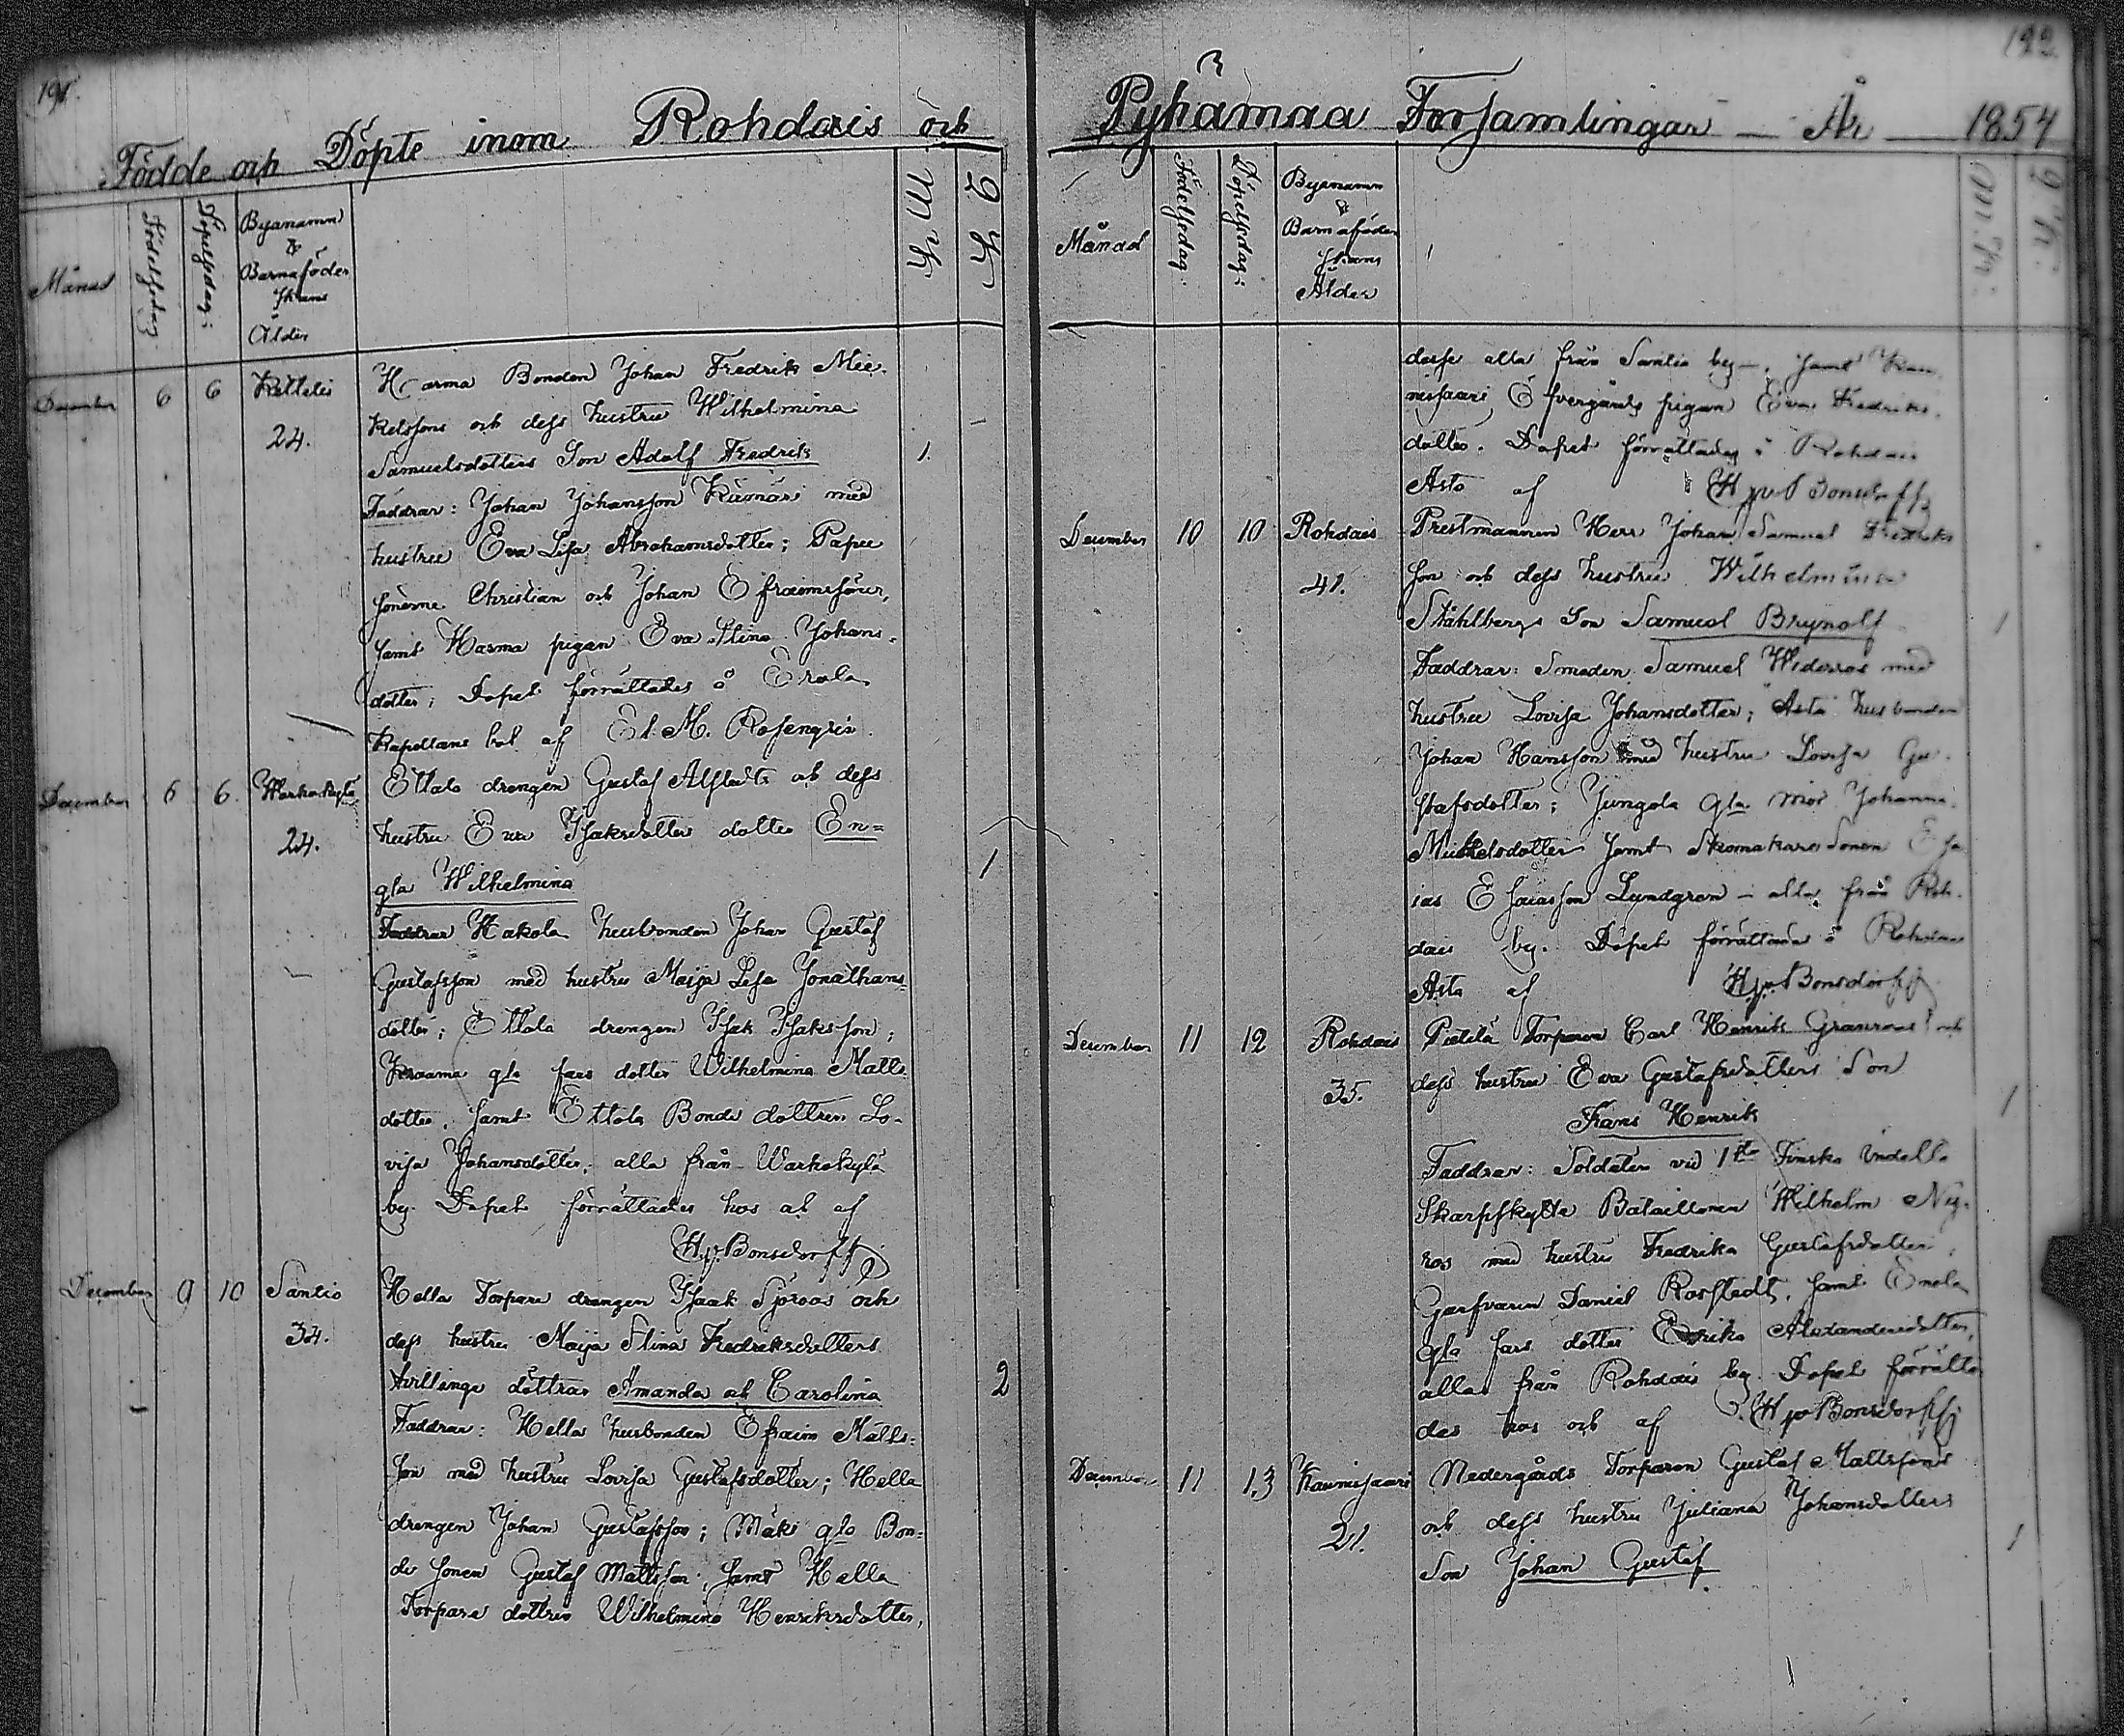 191.
Födde och Döpte inom Rohdais och
Månad
Födelsedag.
Döpelsedag:
Byanamn
&
Barnaföder
skans
Ålder
M K
Q K
December 6 6 Kettelis
24.
Harma Bonden Johan Fredrik Mic-
kelssons och dess hustru Wilhelmina
Samuelsdotters Son Adolf Fredrik
1.
Faddrar: Johan Johansson med
hustru Eva Lisa Abrahamsdotter; Papu
sönerne Christian och Johan Efraimsöner,
samt Harma pigan Eva Stina Johans-
dotter; Dopet förrättades å Erola
Kapellans bol af El. M. Rosengrén.
December 6 6. Warhokylä
24.
Ettala drengen Gustaf Alstedts och dess
hustru Eva Isaksdotters dotter En=
gla Wilhelmina
1
Faddrar Hakola husbonden Johan Gustaf
Gustafsson med hustru Maija Lisa Jonathans-
dotter; Ettala drengen Isak Isaksson;
gla fars dotter Wilhelmina Matts
dotter, samt Ettala Bonde dottren Lo-
visa Johansdotter, alla från Warhokylä
by. Dopet förrättades hos och af
Hj. v. Bonsdorff
December 9 10 Santio
34.
Hella Torpare drengen Isaak Sjöroos och
dess hustru Maija Stina Fredriksdotters
tvillinge döttrar Amanda och Carolina
2
Faddrar: Hella husbonden Efraim Matts-
son med hustru Lovisa Gustafsdotter; Hella
drengen Johan Gustafsson; Mäki gla Bon-
de sonen Gustaf Mattsson, samt Hella
Torpare dottren Wilhelmina Henriksdotter,
192
Pyhämaa Församlingar — År 1854
Månad
Födelsedag.
Döpelsedag:
Byanamn
&
Barnaföder
skans
Ålder
M. K:
Q K:
desse alla från Santio by —, samt Kau-
nissaari Öfvergårds pigan Eva Fredriks-
dotter. Dopet förrättades å Rohdais
Asta af Hj v Bonsdorff
December 10 10 Rohdais
41.
Prestmannen Herr Johan Samuel Fredriks
son och dess hustru Wilhelmina
Ståhlbergs Son Samuel Brynolf
1
Faddrar: Smeden Samuel Widerros med
hustru Lovisa Johansdotter; Asta husbonden
Johan Hansson med hustru Lovisa Gu-
stafsdotter; Jungola Gla mor Johanna
Michelsdotter samt Skomakare Sonen Esa
ias Esaiasson Lundgren – alla från Roh-
dais by. Döpet förrättades å Rohdais
Asta af Hj v Bonsdorff
December 11 12 Rohdais
35.
Pietilä Torparen Carl Henrik Granroos och
dess hustru Eva Gustafsdotters Son
Frans Henrik
1
Faddrar: Soldaten vid 1sta Finska Indelta
Skarpskytte Bataillonen Wilhelm Ny-
ros med hustru Fredrika Gustafsdotter,
Garfvaren Daniel Rosstedt, samt Emola
gla fars dotter Erika Alexandersdotter,
alla från Rohdais by. Dopet förrätta-
des hos och af Hj v Bonsdorff
December 11 13 Kaunissaari
21.
Nedergårds Torparen Gustaf Mattssons
och dess hustru Juliana Johansdotters
Son Johan Gustaf
1